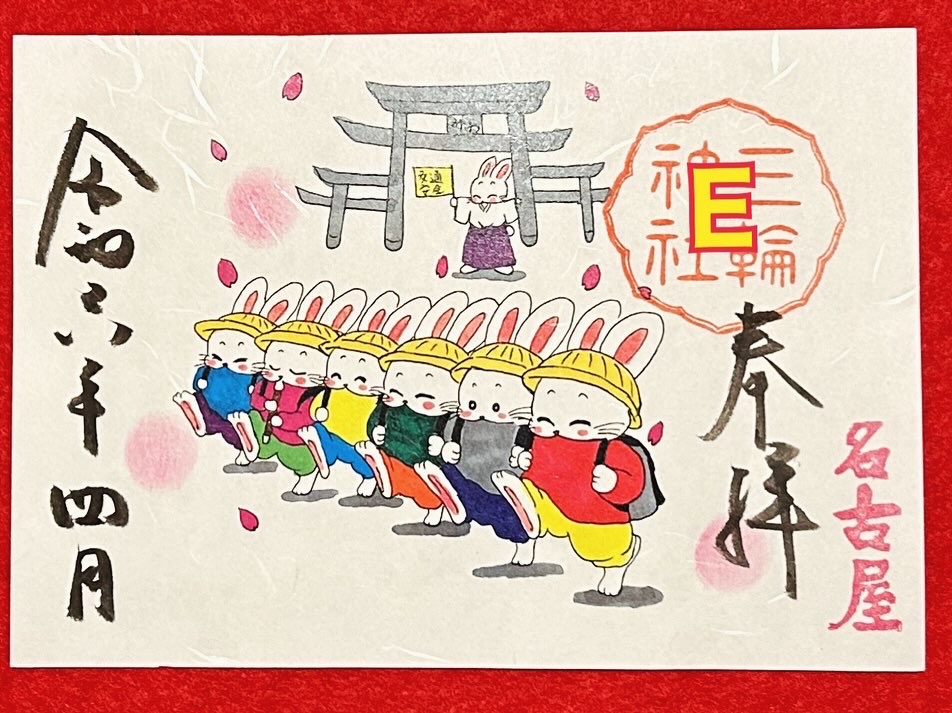 三輪
神社
E
奉拝
名古屋
交通
安全
令和六年四月